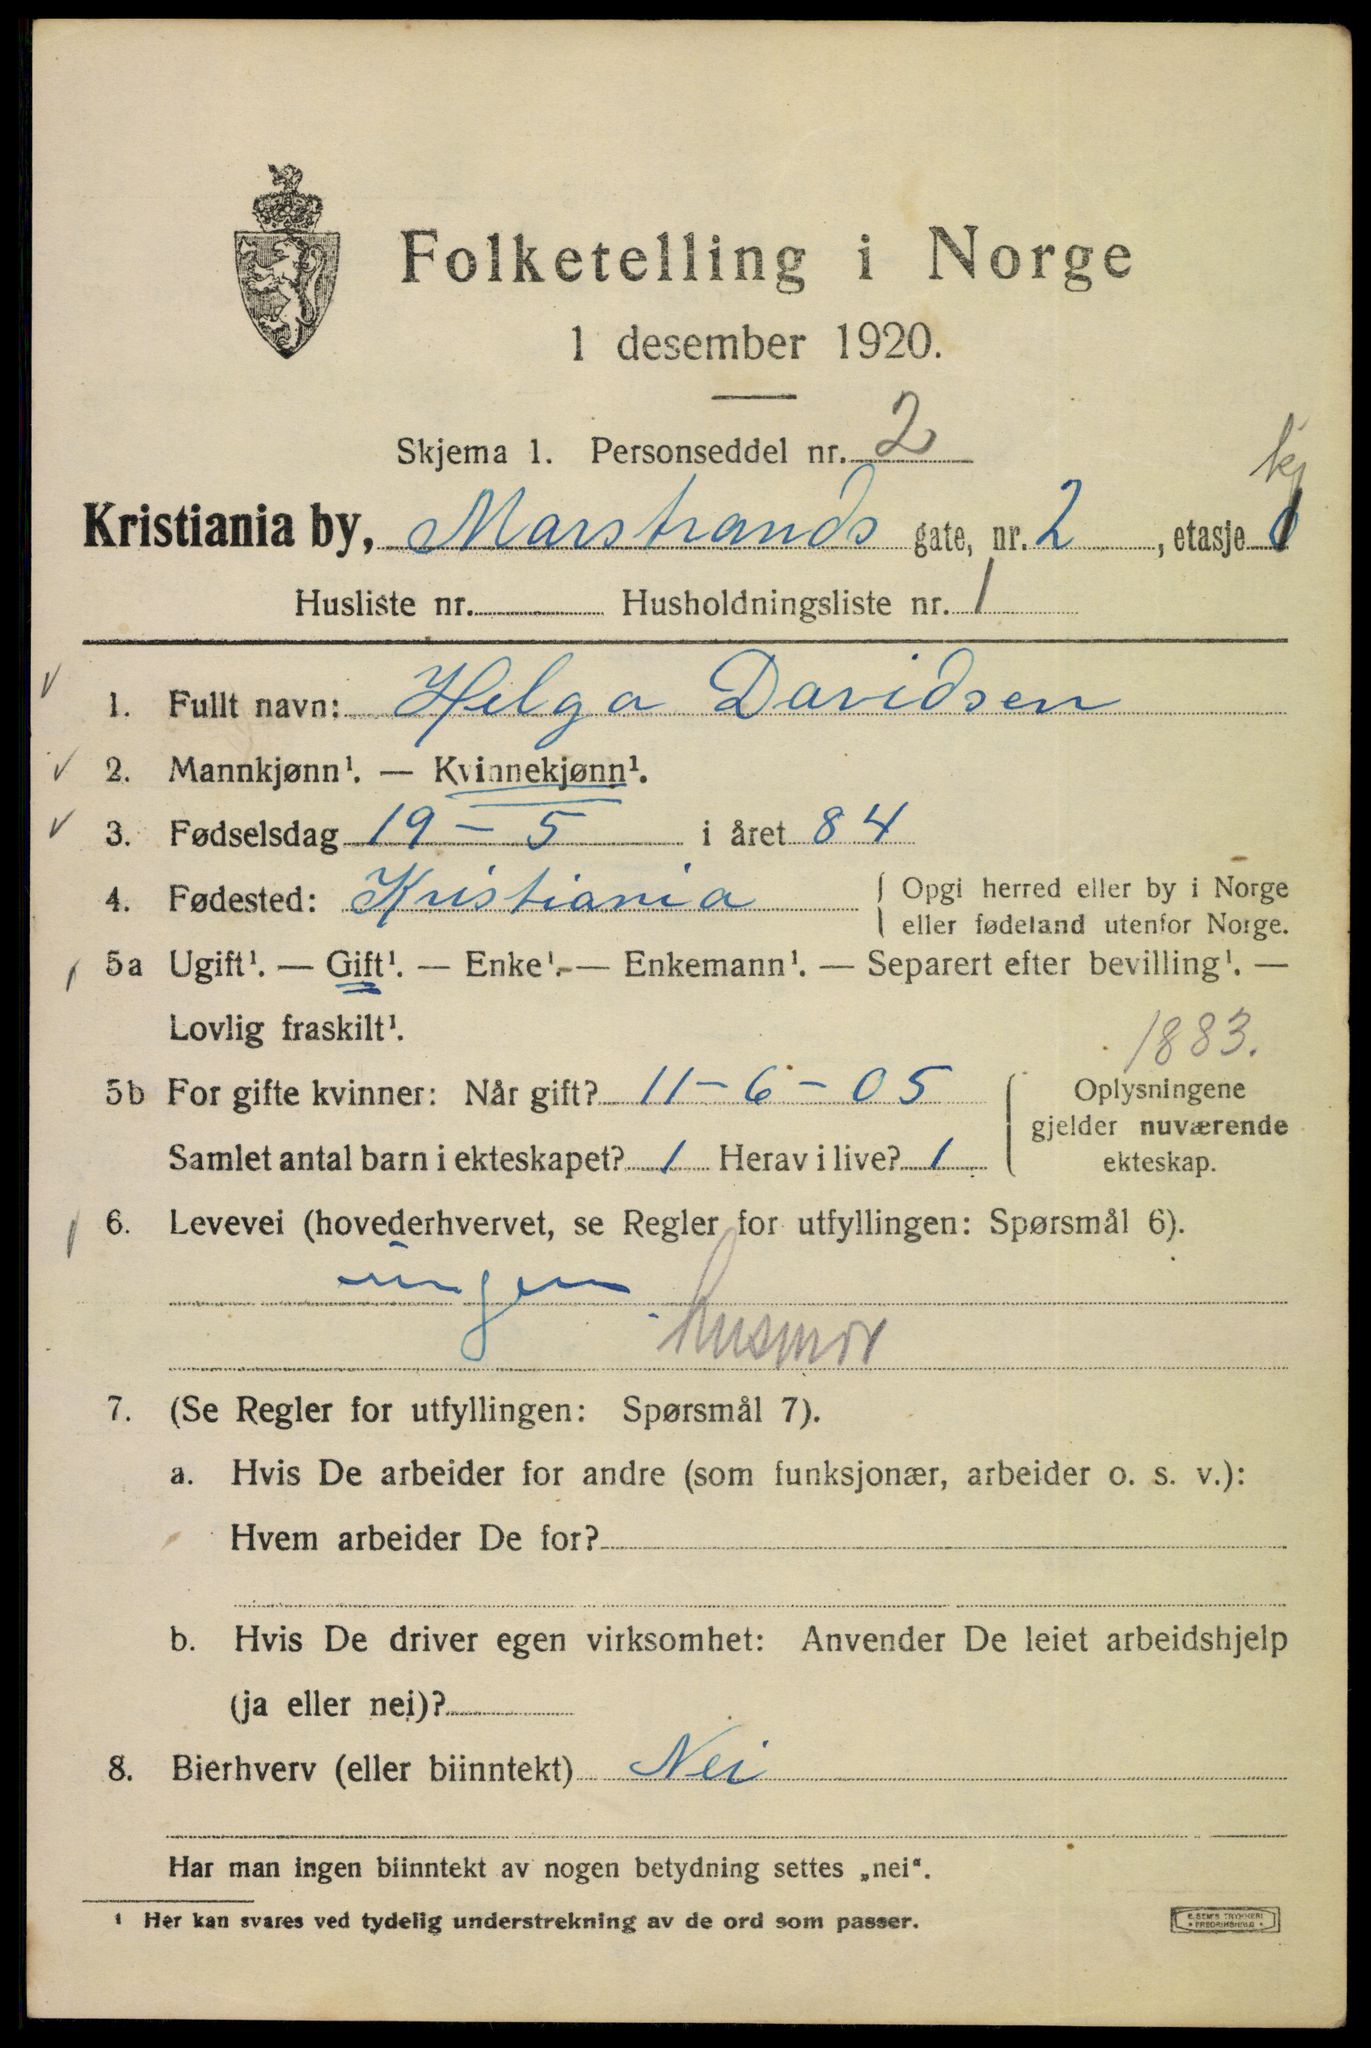 Folketelling i Norge
1 desember 1920.
Skjema 1. Personseddel nr. 2
kj
Kristiania by, Marstrands gate, nr. 2, etasje
Husliste nr. Husholdningsliste nr. 1
1. Fullt navn: Helga Davidsen
2. Mannkjønn¹. — Kvinnekjønn¹.
3. Fødselsdag 19 – 5 i året 84
4. Fødested: Kristiania
Opgi herred eller by i Norge
eller fødeland utenfor Norge.
5a Ugift¹. — Gift¹. — Enke¹. — Enkemann¹. — Separert efter bevilling¹. —
Lovlig fraskilt¹.
1883.
5b For gifte kvinner: Når gift? 11 – 6 – 05
Samlet antal barn i ekteskapet? 1 Herav i live? 1
Oplysningene
gjelder nuværende
ekteskap.
6. Levevei (hovederhvervet, se Regler for utfyllingen: Spørsmål 6).
ingen
husmor
7. (Se Regler for utfyllingen: Spørsmål 7).
a. Hvis De arbeider for andre (som funksjonær, arbeider o. s. v.):
Hvem arbeider De for?
b. Hvis De driver egen virksomhet: Anvender De leiet arbeidshjelp
(ja eller nei)?
8. Bierhverv (eller biinntekt) Nei
Har man ingen biinntekt av nogen betydning settes „nei“.
¹ Her kan svares ved tydelig understrekning av de ord som passer.
E. SEM'S TRYKKERI
FREDRIKSHALD